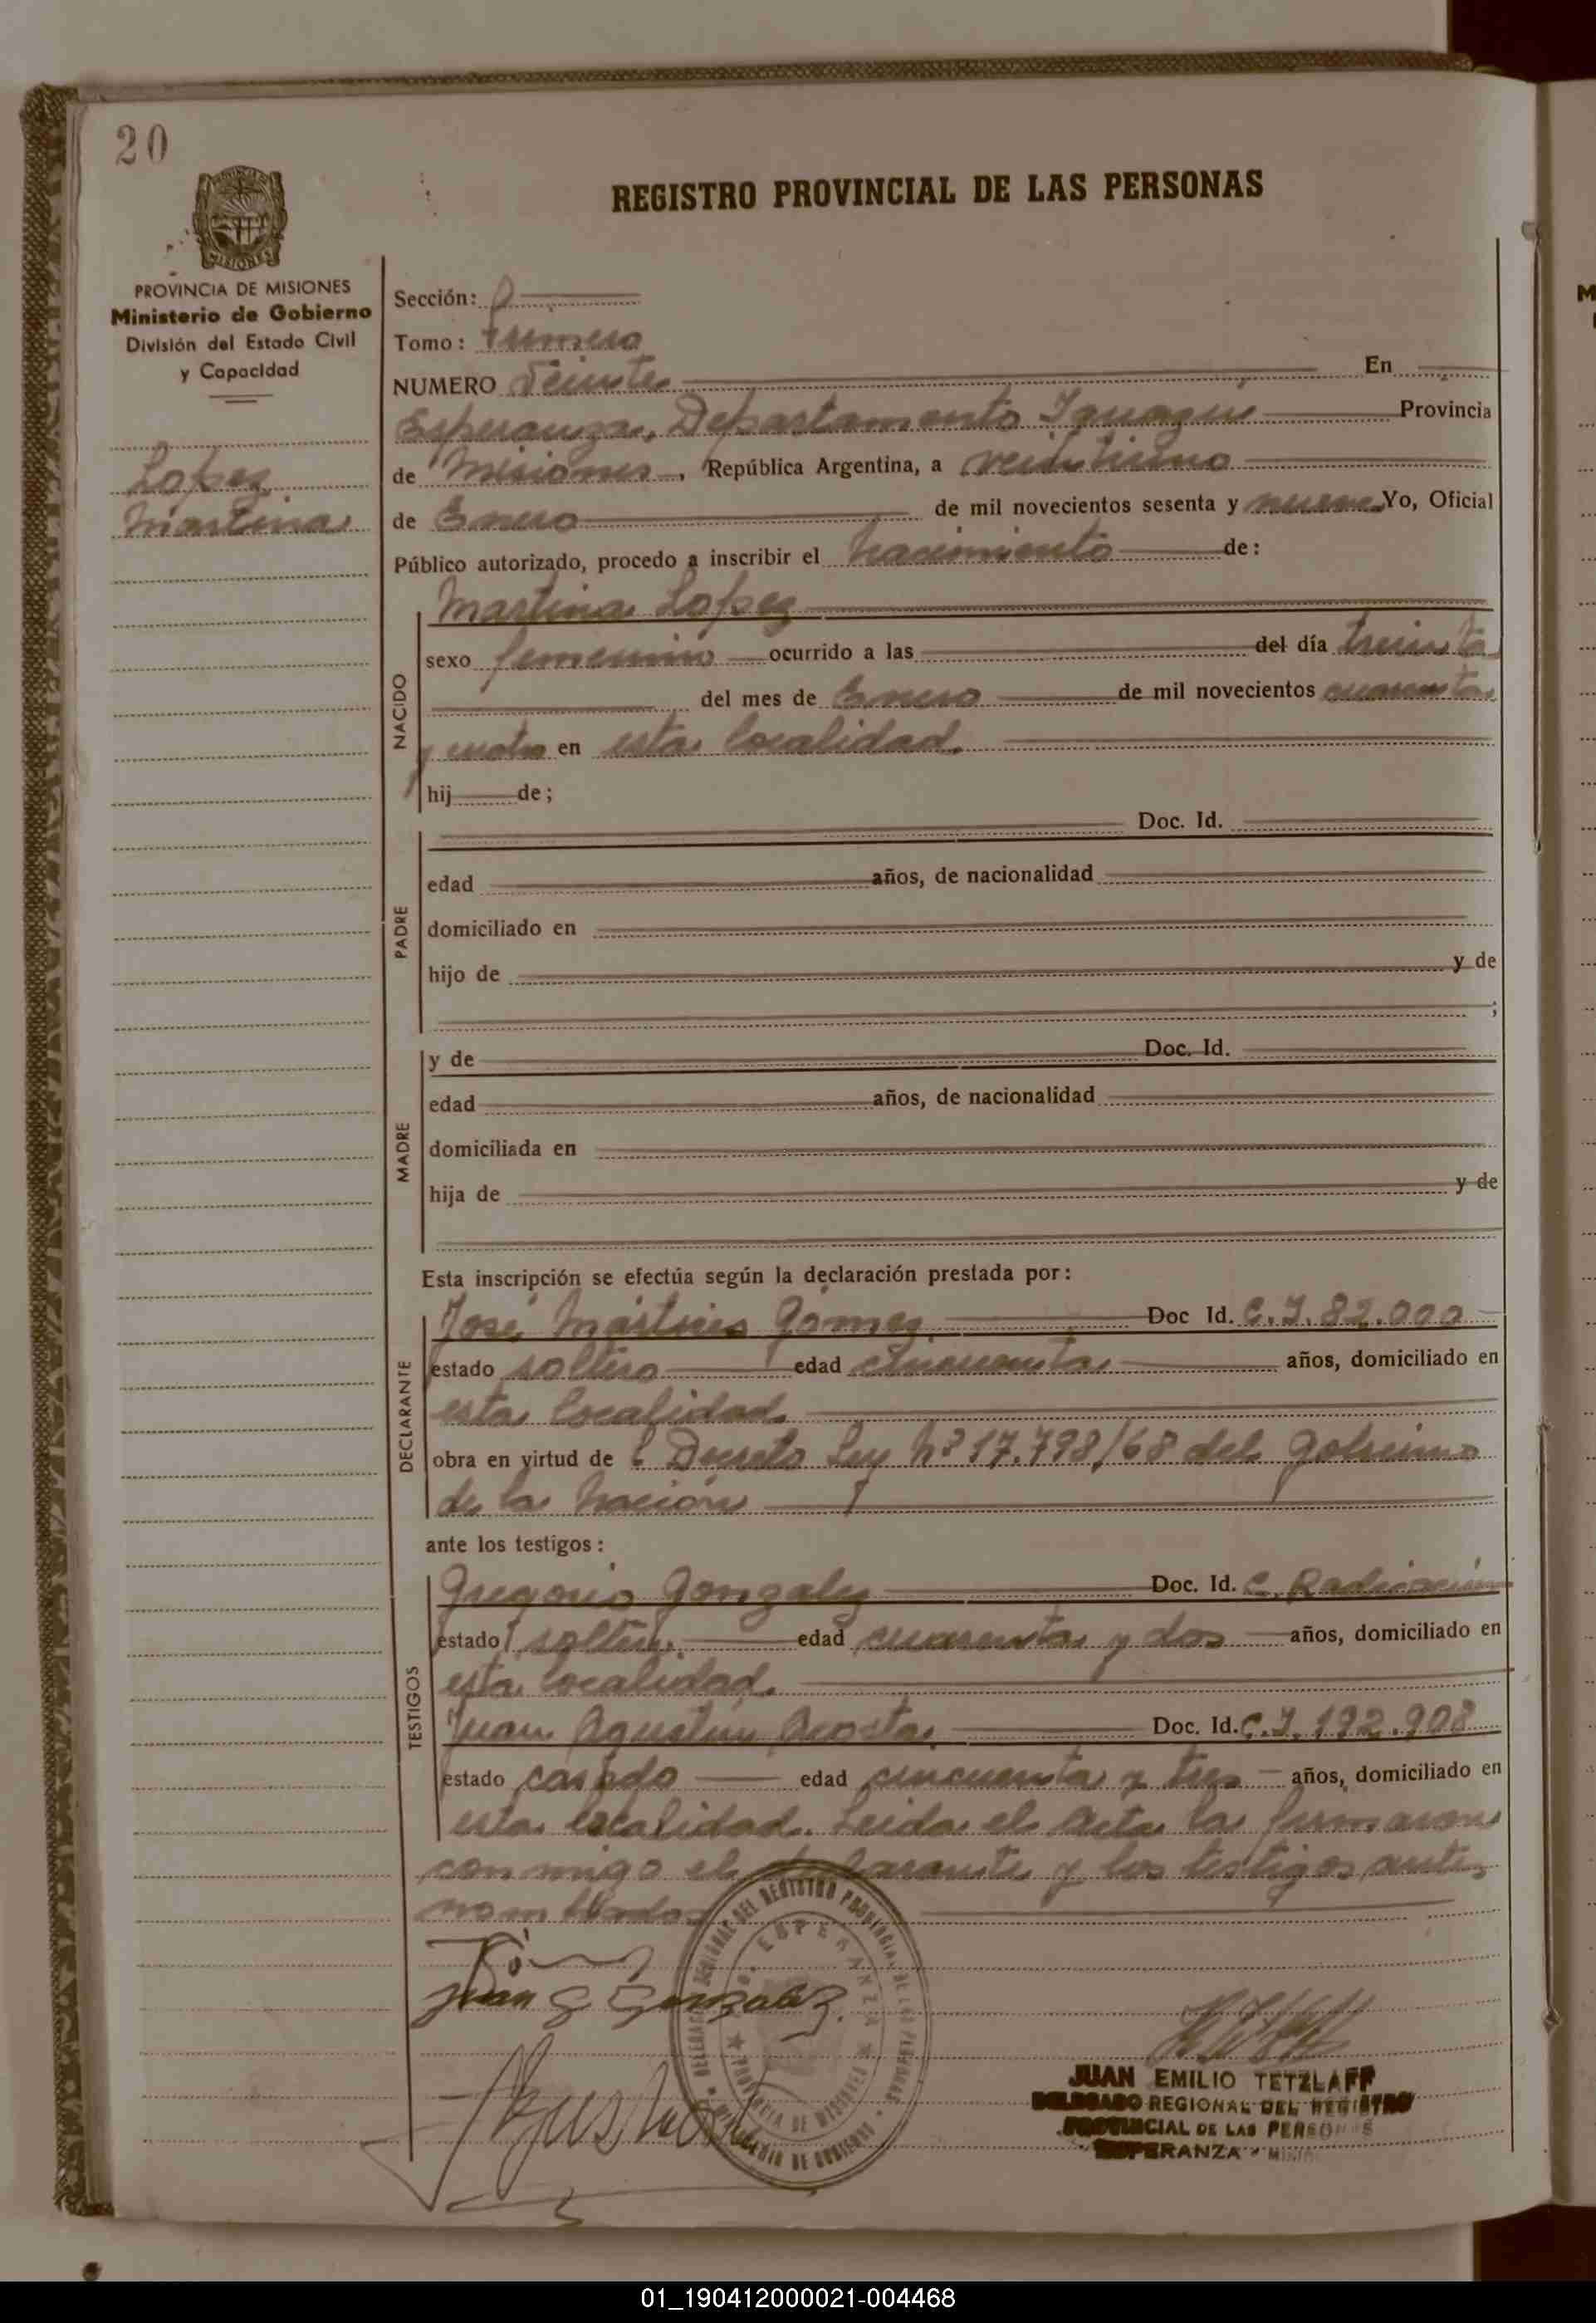 20
REGISTRO PROVINCIAL DE LAS PERSONAS
MISIONES
PROVINCIA DE MISIONES
Ministerio de Gobierno
División del Estado Civil
y Capacidad
Lopez
Martina
Sección:
Tomo: Primero
NUMERO Veinte En
Esperanza, Departamento Iguazú Provincia
de Misiones, República Argentina, a veintiuno
de Enero de mil novecientos sesenta y nueve Yo, Oficial
Público autorizado, procedo a inscribir el Nacimiento de:
NACIDO
Martina Lopez
sexo femenino ocurrido a las del día treinta
del mes de Enero de mil novecientos cuarenta
y cuatro en esta localidad.
hij de;
PADRE
Doc. Id.
edad años, de nacionalidad
domiciliado en
hijo de y de
;
MADRE
y de Doc. Id.
edad años, de nacionalidad
domiciliada en
hija de y de
Esta inscripción se efectúa según la declaración prestada por:
DECLARANTE
José Mártires Gómez Doc Id. C.I. 82.000
estado soltero edad cincuenta años, domiciliado en
esta localidad
obra en virtud de l Decreto Ley Nº 17.798/68 del Gobierno
de la Nación
ante los testigos:
TESTIGOS
Gregorio Gonzalez Doc. Id. C. Radicación
estado solter. edad cuarenta y dos años, domiciliado en
esta localidad.
Juan Agustín Acosta Doc. Id. C.I. 192.908
estado casado edad cincuenta y tres años, domiciliado en
esta localidad. Leida el acta la firmaron
conmigo el declarante y los testigos antes
nombrados
Juan G Gonzalez.
DELEGACION REGIONAL DEL REGISTRO PROVINCIAL DE LAS PERSONAS
ESPERANZA
PROVINCIA DE MISIONES
MINISTERIO DE GOBIERNO
JUAN EMILIO TETZLAFF
DELEGADO REGIONAL DEL REGISTRO
PROVINCIAL DE LAS PERSONAS
ESPERANZA
01_190412000021-004468